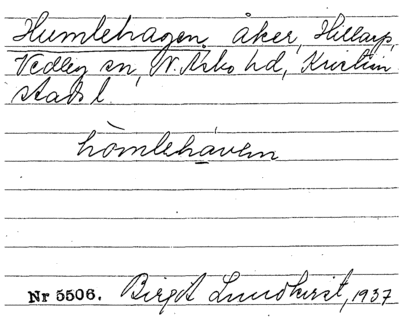 Humlehagen, åker, Hillarp,
Vedby sn, N. Åsbo hd, Kristian
stads l.
hòmlehàven
Nr 5506. Birgit Lundkvist, 1937